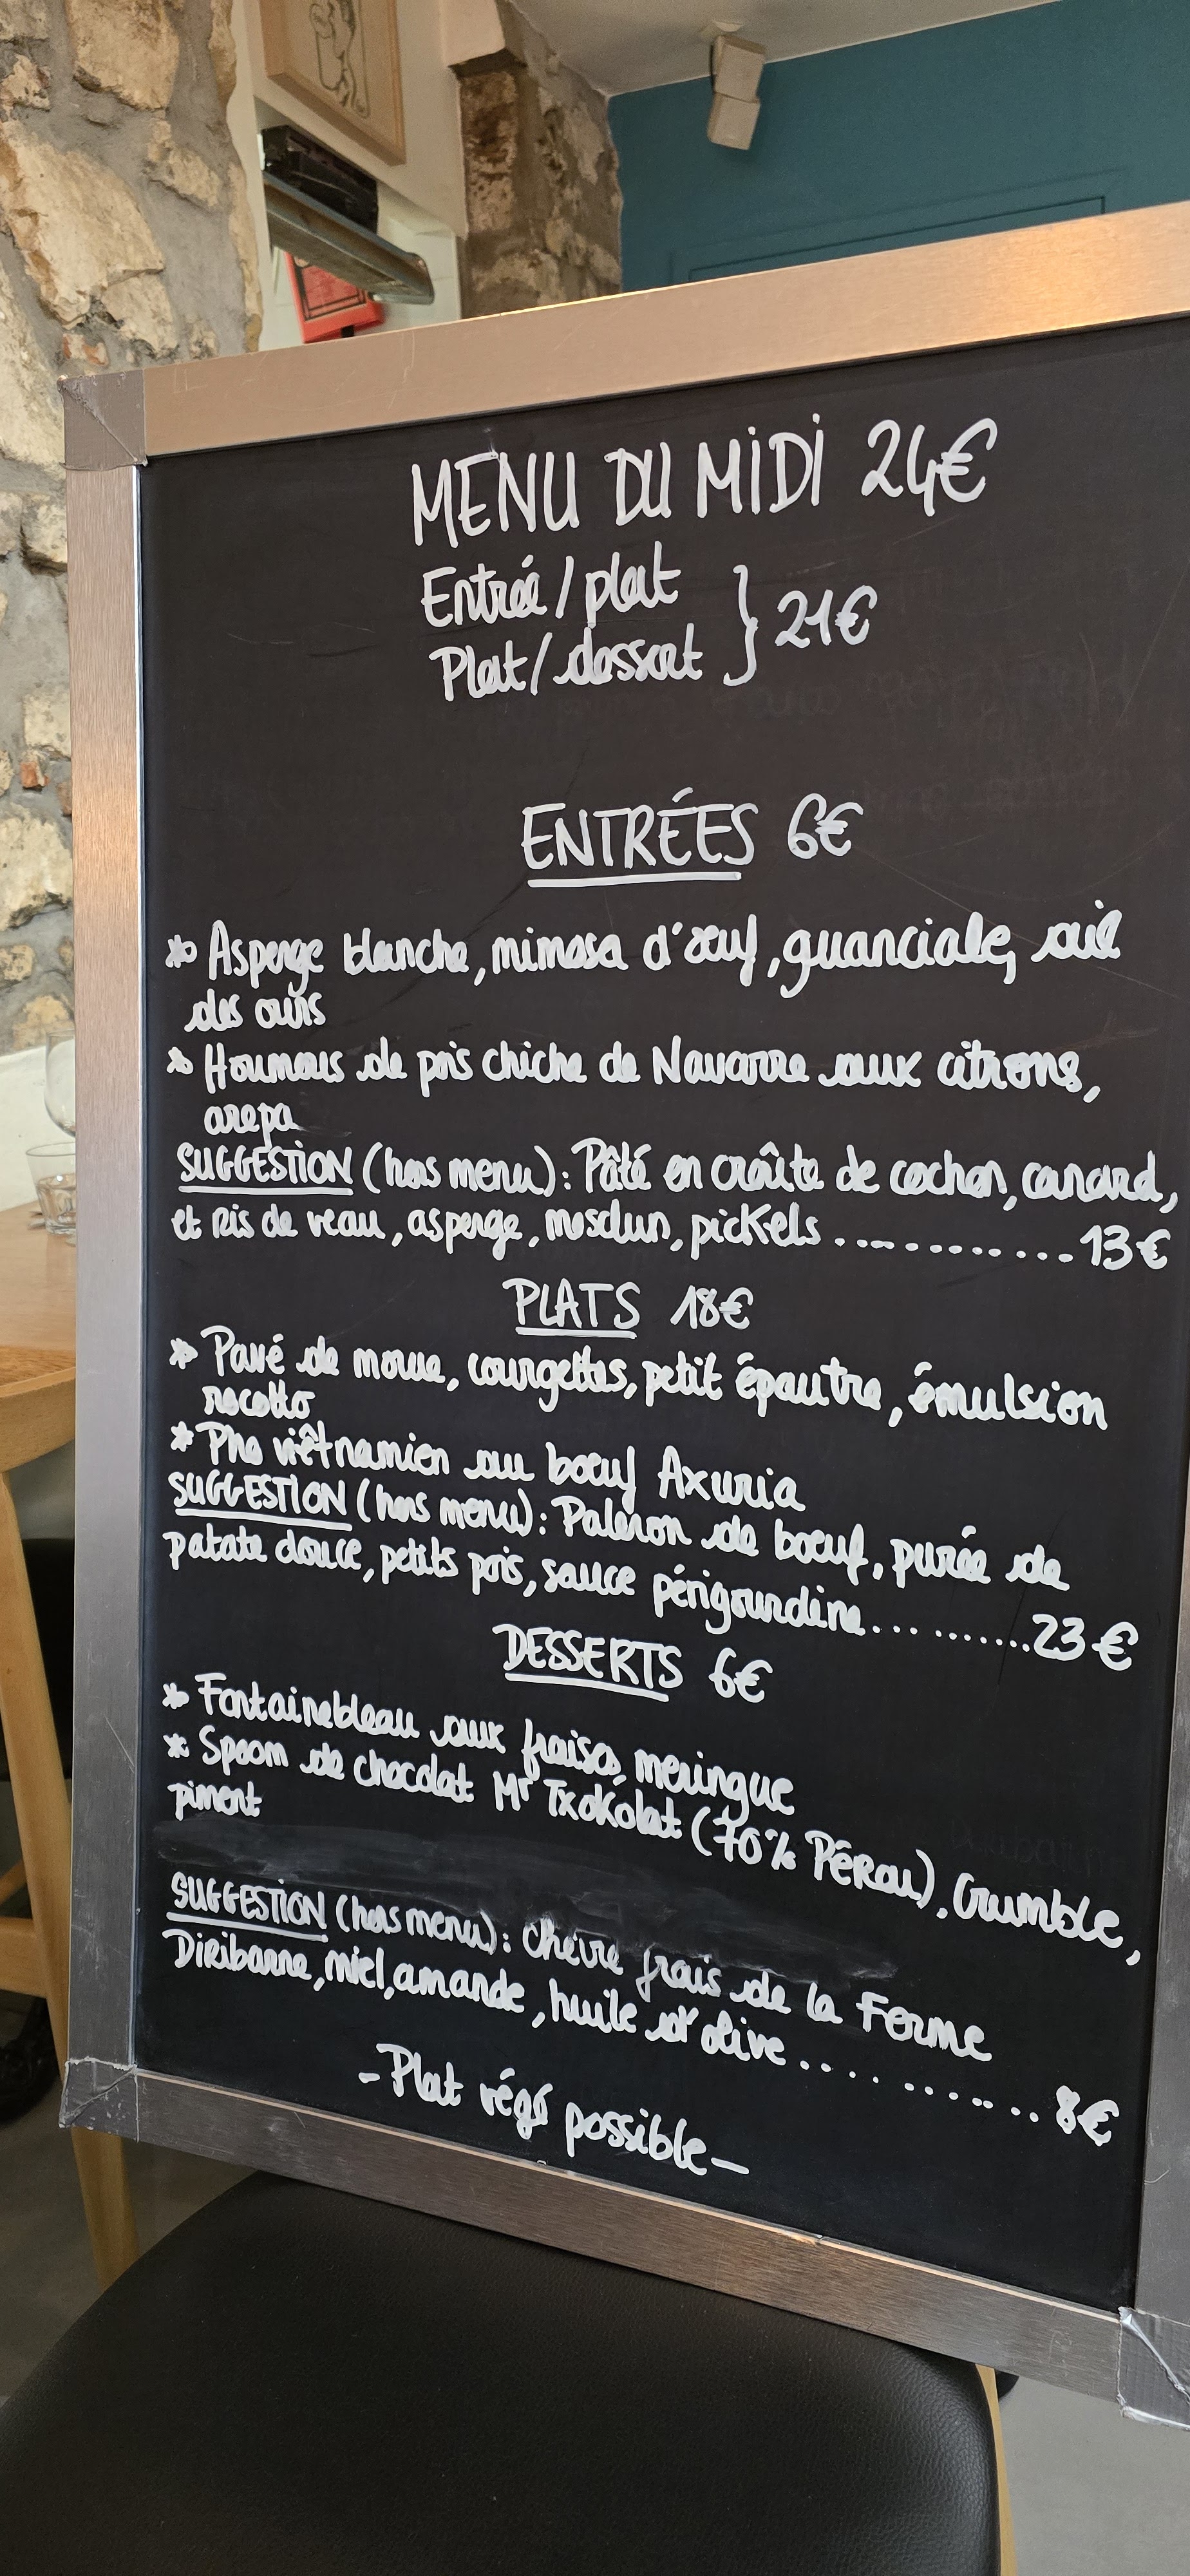 MENU DU MIDI 24€
Entrée / plat
Plat / dessert } 21€
ENTRÉES 6€
* Asperge blanche, mimosa d'œuf, guanciale, ail
des ours
* Houmous de pois chiche de Navarre aux citrons,
arepa
SUGGESTION (hors menu) : Pâté en croûte de cochon, canard,
et Ris de veau, asperge, mesclun, pickels ............ 13€
PLATS 18€
* Pavé de morue, courgettes, petit épautre, émulsion
recotto
* Pho viêtnamien au bœuf Axuria
SUGGESTION (hors menu) : Paleron de bœuf, purée de
patate douce, petits pois, sauce périgourdine.......... 23€
DESSERTS 6€
* Fontainebleau aux fraises, meringue
* Spoom de chocolat Mr Txokolat (70% Pérou), Crumble,
piment
SUGGESTION (hors menu) : Chèvre frais de la Ferme
Diribarne, miel, amande, huile d'olive ............ 8€
- Plat végé possible -